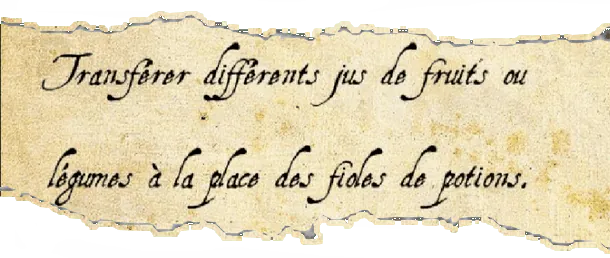 Transférer différents jus de fruits ou
légumes à la place des fioles de potions.